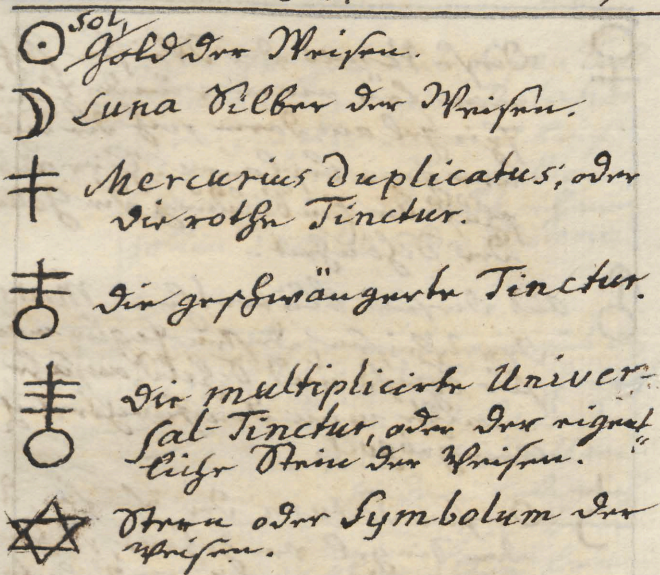 ☉ Sol,
Gold der Weisen.
☽ Luna Silber der Weisen.
Mercurius duplicatus; oder
die rothe Tinctur.
die geschwängerte Tinctur.
die multiplicirte Univer-
sal-Tinctur, oder der eigent-
liche Stein der Weisen.
✡ Stern oder Symbolum der
Weisen.